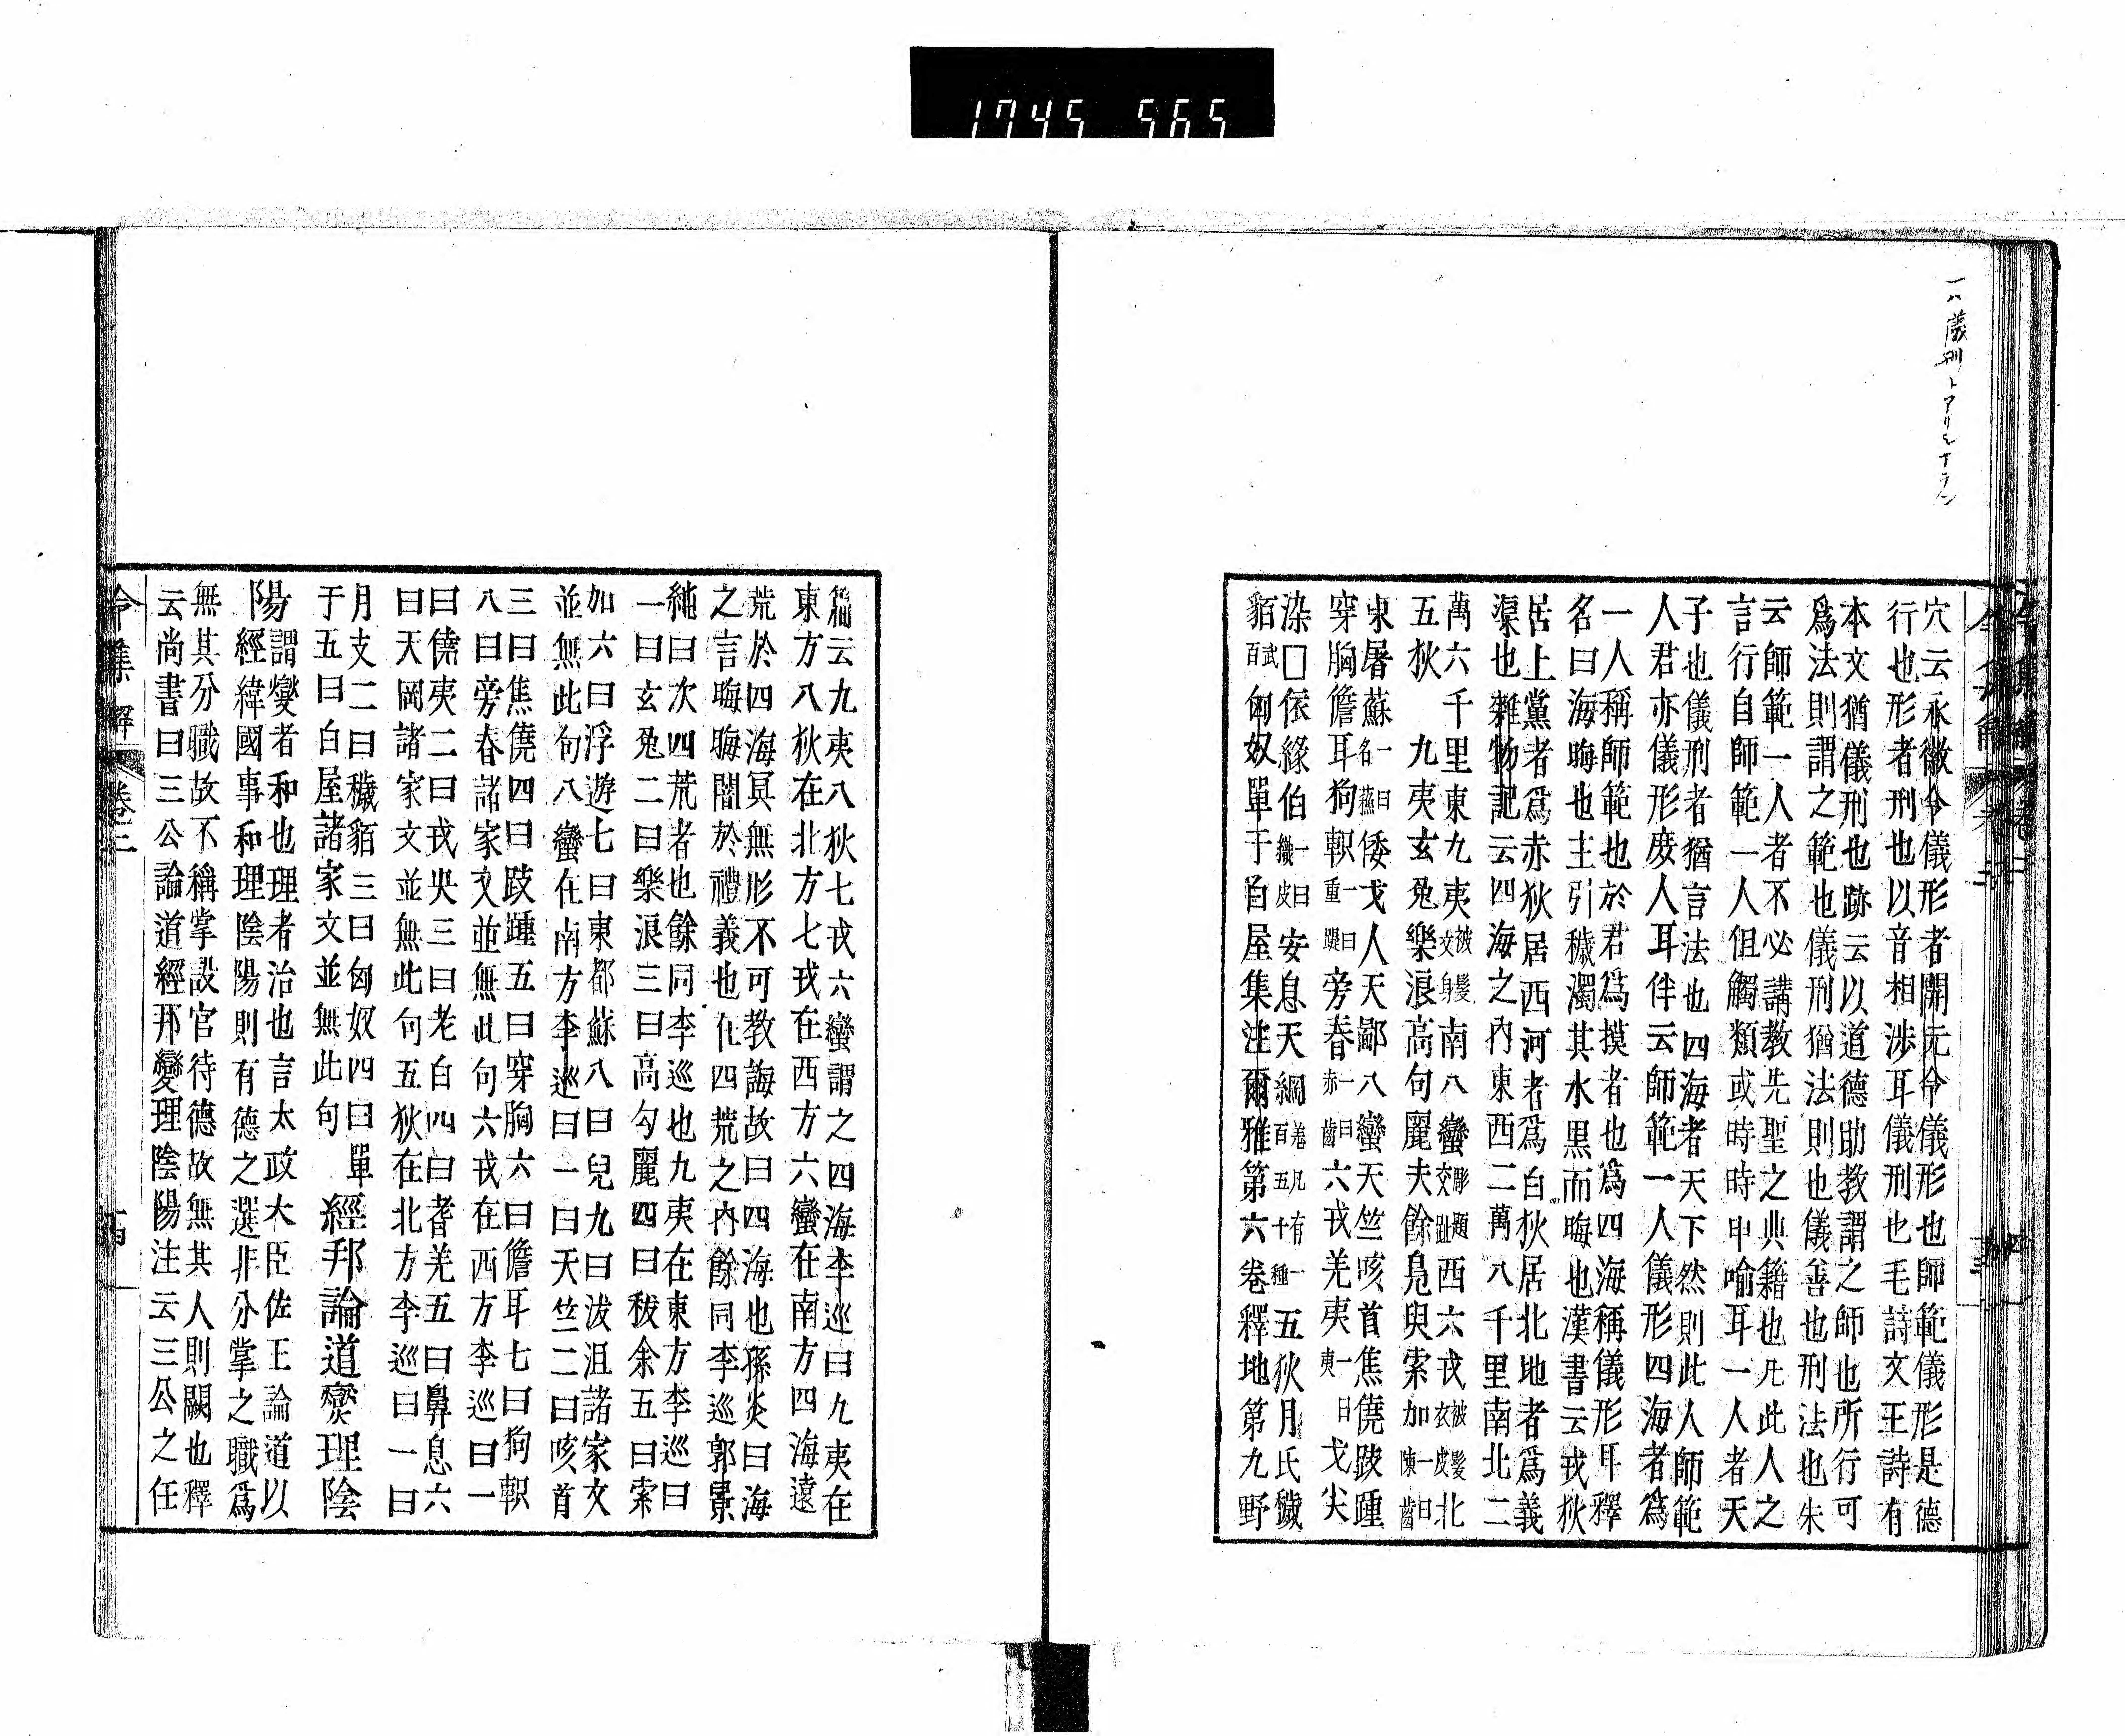 1745 565
穴云永徽令儀形者開元令儀形也師範儀形是德
行也形者刑也以音相渉耳儀刑也毛詩文王詩有
本文猶儀刑也跡云以道德助教謂之師也所行可
爲法則謂之範也儀刑猶法則也儀善也刑法也朱
云師範一人者不必講教先聖之典籍也凡此人之
言行自師範一人但觸類或時時申喻耳一人者天
子也儀刑者猶言法也四海者天下然則此人師範
人君亦儀形度人耳伴云師範一人儀形四海者爲
一人稱師範也於君爲摸者也爲四海稱儀形耳釋
名曰海晦也主引穢濁其水黒而晦也漢書云戎狄
居上黨者爲赤狄居西河者爲白狄居北地者爲義
渠也雜物記云四海之内東西二萬八千里南北二
萬六千里東九夷被髮文身南八蠻彫題交趾西六戎被髮衣皮北
五狄 九夷玄兎樂浪高句麗夫餘鳬與索加一曰陳齒
東屠蘇一曰名蘓倭戈人天鄙八蠻天竺咳首焦僥跂踵
穿胸儋耳狗軹一曰重䠗旁春一曰赤齒六戎羌夷一曰夷戈尖
染□依緣伯一曰鬷皮安息天綱卷凡有一百五十種五狄月氏穢
貊武百匈奴單于白屋集注爾雅第六卷釋地第九野
篇云九夷八狄七戎六蠻謂之四海李巡曰九夷在
東方八狄在北方七戎在西方六蠻在南方四海遠
荒於四海冥無形不可教誨故曰四海也孫炎曰海
之言晦晦闇於禮義也仕四荒之内餘同李巡郭景
純曰次四荒者也餘同李巡也九夷在東方李巡曰
一曰玄兎二曰樂浪三曰高勾麗四曰秡余五曰索
如六曰浮遊七曰東都蘇八曰兒九曰泼沮諸家文
並無此句八蠻在南方李巡曰一曰天竺二曰咳首
三曰焦僥四曰跂踵五曰穿胸六曰儋耳七曰狗軹
八曰旁春諸家文並無此句六戎在西方李巡曰一
曰僥夷二曰戎央三曰老白四曰耆羌五曰鼻息六
曰天岡諸家文並無此句五狄在北方李巡曰一曰
月支二曰穢貊三曰匈奴四曰單
于五曰白屋諸家文並無此句
經邦論道燮理陰
陽謂燮者和也理者治也言太政大臣佐王論道以
經緯國事和理陰陽則有德之選非分掌之職爲
無其分職故不稱掌設官待德故無其人則闕也釋
云尚書曰三公論道經邦變理陰陽注云三公之任
令集解 卷二